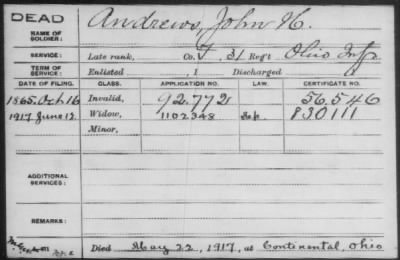 DEAD
Andrews, John H.
NAME OF SOLDIER:
SERVICE: Late rank, Co. F, 31 Reg't Ohio Inf.
TERM OF SERVICE: Enlisted , 1 Discharged
DATE OF FILING. CLASS. APPLICATION NO. LAW. CERTIFICATE NO.
1865. Oct. 16 Invalid, 92.772 56.546
1917. June 12 Widow, 1102348 830111
Minor,
ADDITIONAL SERVICES:
REMARKS:
Died May 22, 1917, at Continental, Ohio